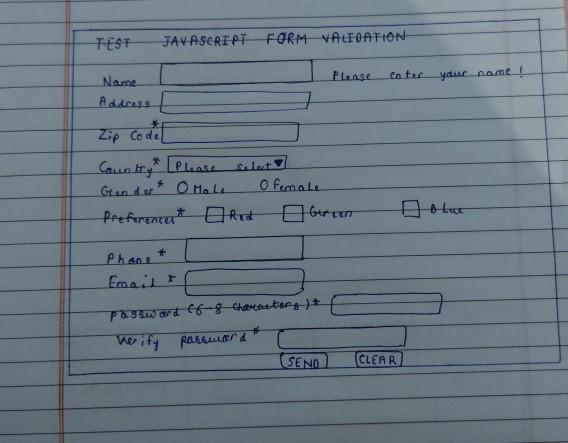 TEST JAVASCRIPT FORM VALIDATION
Name Please enter your name!
Address
Zip Code*
Country* Please select
Gender* Male Female
Preferences* Red Green Blue
Phone*
Email*
password (6-8 characters)*
Verify password*
SEND CLEAR